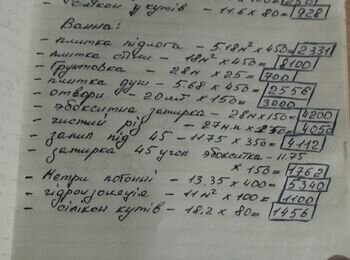 - Силікон у кутів - 11.6 x 80 = 928
Ванна:
- плитка підлога - 5.18м² x 450 = 2331
- плитка стіни - 18м² x 450 = 8100
- Грунтовка - 28м x 25 = 700
- плитка душ - 5.68 x 450 = 2556
- отвори - 20шт x 150 = 3000
- эбокситна затирка - 28м x 150 = 4200
- чистий різ - 27м.п x 150 = 4050
- запил під 45 - 11.75 x 350 = 4112
- затирка 45 угол эбокситка - 11.75
x 150 = 1762
- Метри погонні - 13.35 x 400 = 5340
- гідроізоляція - 11м² x 100 = 1100
- Сілікон кутів - 18.2 x 80 = 1456